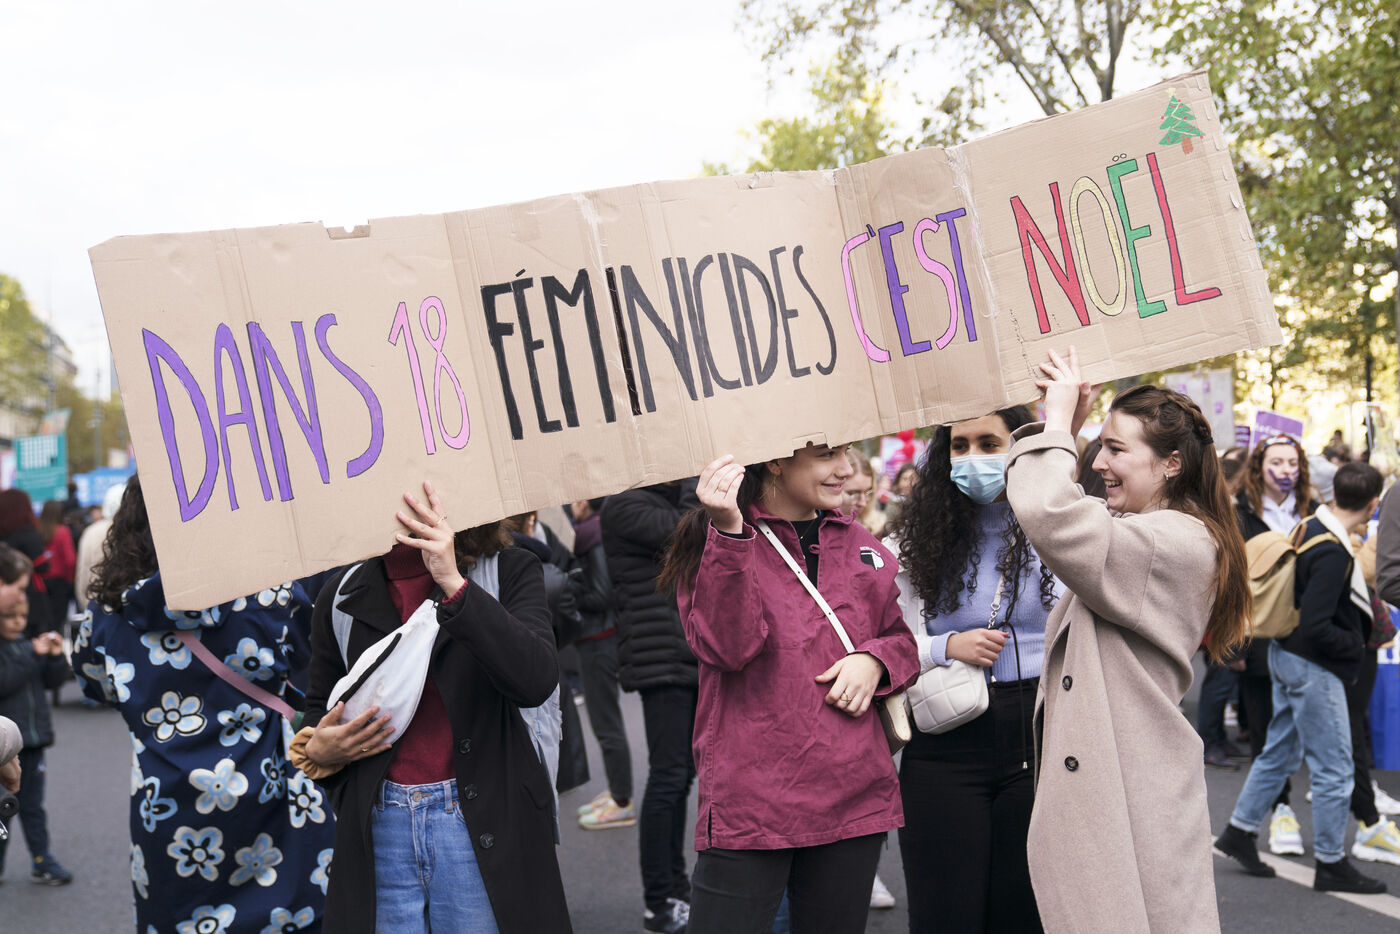 DANS 18 FÉMINICIDES C'EST NOËL